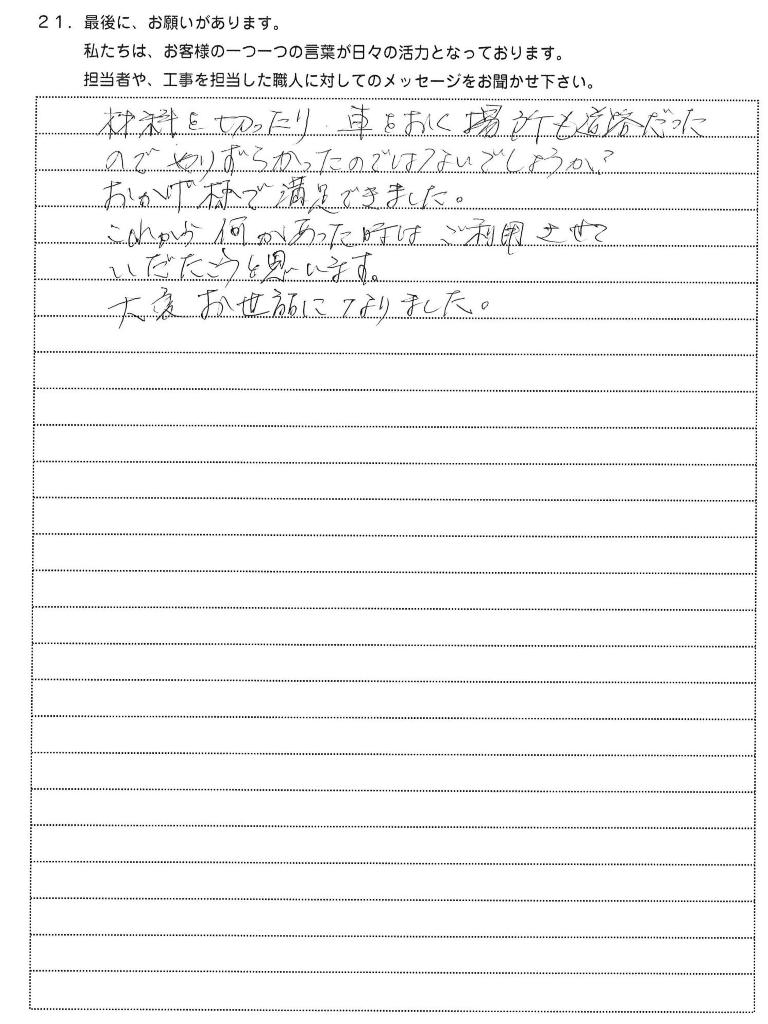 ２１．最後に、お願いがあります。
私たちは、お客様の一つ一つの言葉が日々の活力となっております。
担当者や、工事を担当した職人に対してのメッセージをお聞かせ下さい。
材料を切ったり、車をおく場所も道路だった
のでやりずらかったのではないでしょうか?
おかげ様で満足できました。
これから何かあった時はご利用させて
いだたこうと思います。
大変お世話になりました。